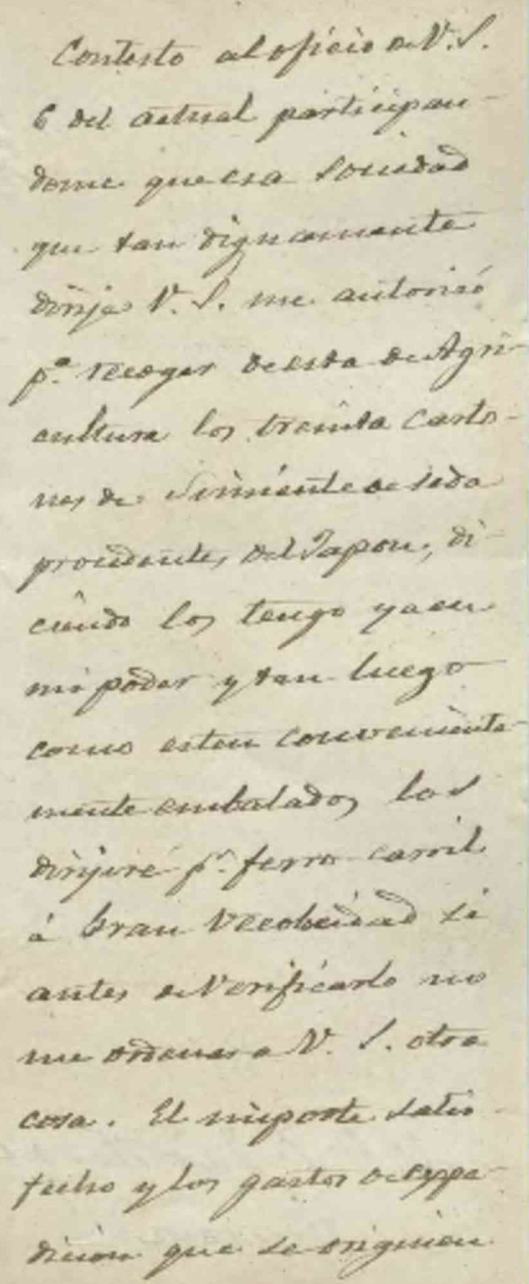 Contesto al oficio de V. S.
6 del actual participan-
dome que esa sociedad
que tan dignamente
dirije V. S. me autorisó
pª recoger de esta de Agri-
cultura los treinta carto-
nes de simiente de seda
procedentes del Japon, di-
ciendo los tengo ya en
mi poder y tan luego
como esten conveniente-
mente embalados los
dirijiré pr ferro-carril
á Gran Velocidad si
antes de verificarlo no
me ordenara V. S. otra
cosa. El importe satis-
fecho y los gastos de espe-
dicion que se originen